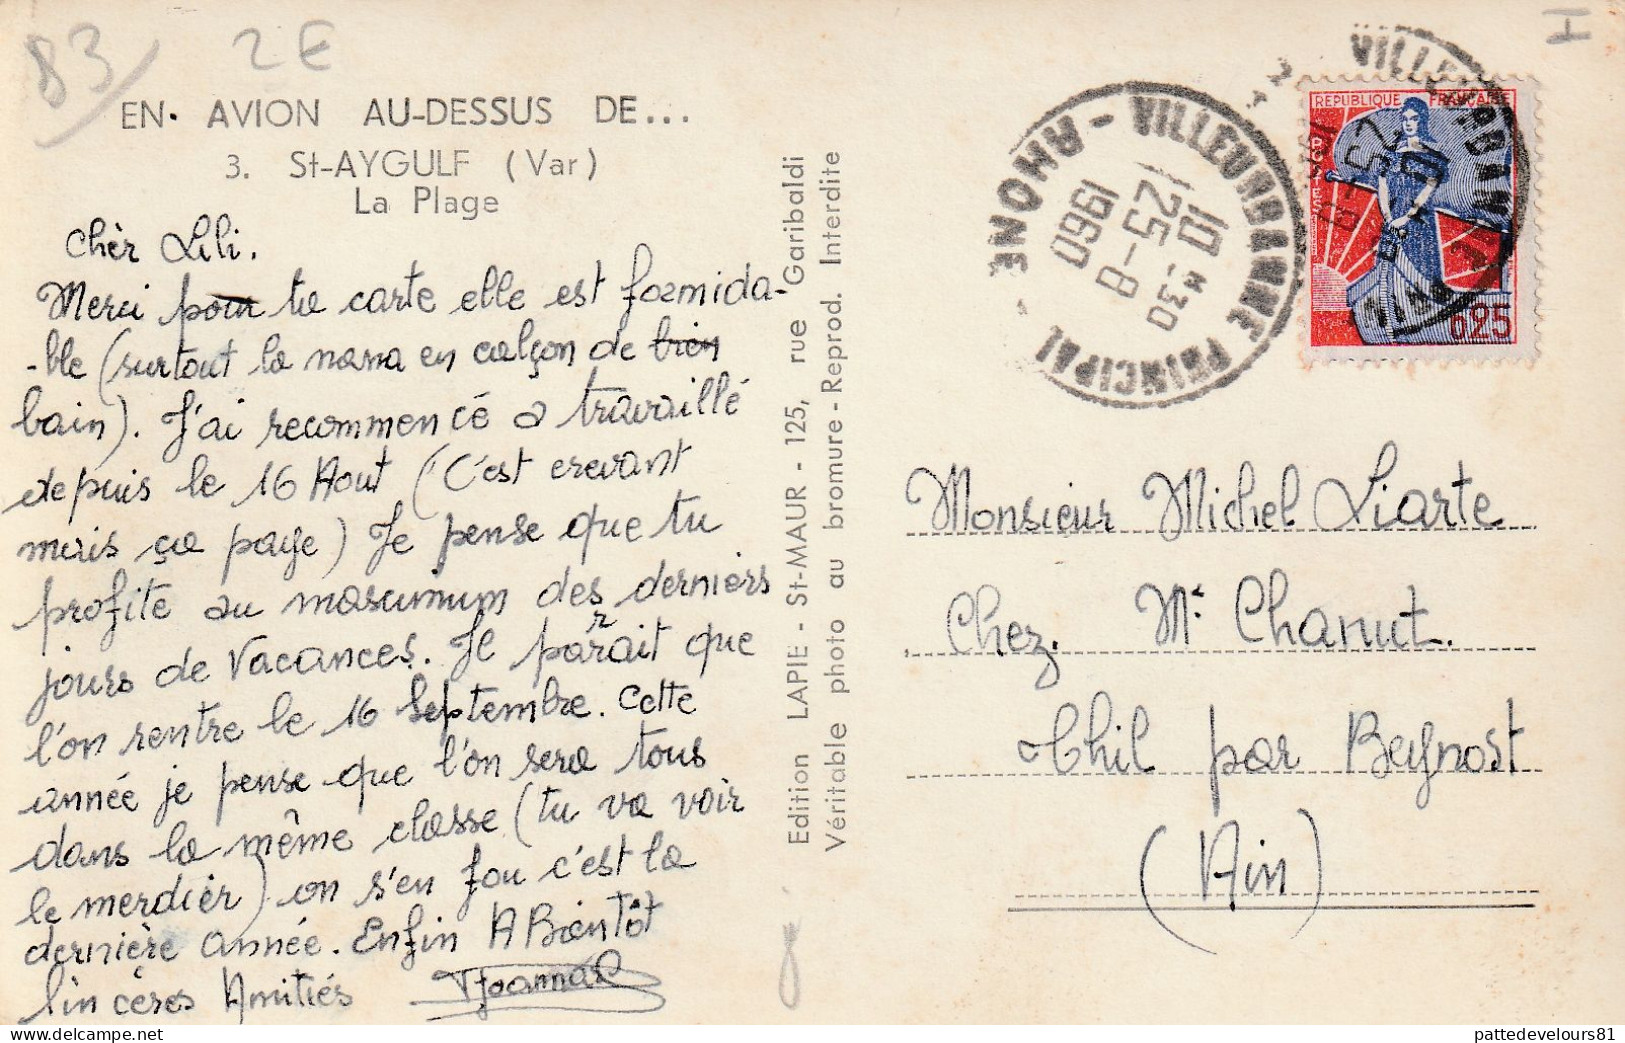 83 2€
I
EN AVION AU-DESSUS DE...
3. St-AYGULF (Var)
La Plage
Chèr Lili.
Merci pour ta carte elle est formida-
-ble (surtout la nana en calçon de bien
bain). J'ai recommencé a travaillé
depuis le 16 Aout (C'est crevant
mais ça paye) Je pense que tu
profite au maximum des derniers
jours de Vacances. Il parait que
l'on rentre le 16 Septembre. Cette
année je pense que l'on sera tous
dans la même classe (tu va voir
le merdièr) on s'en fou c'est la
dernière année. Enfin A Bientôt
Sincères Amitiés
Edition LAPIE - St-MAUR - 125, rue Garibaldi
Véritable photo au bromure - Reprod. Interdite
VILLEURBANNE PRINCIPAL
RHONE
10 H 30
25-8
1960
REPUBLIQUE FRANÇAISE
POSTES
0,25
Monsieur Michel Liarte
Chez. Mr Chanut.
Thil par Beynost
(Ain)
pattedevelours81